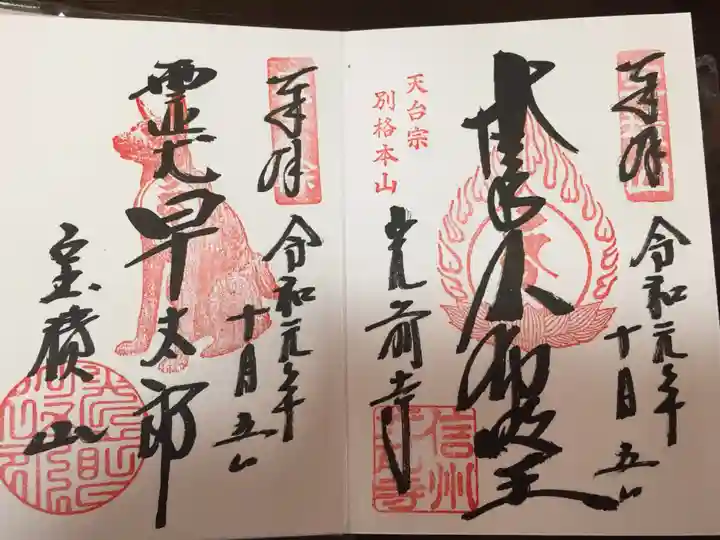 奉拝
令和元年
十月五日
不動明王
天台宗
別格本山
光前寺
信州
光前寺
奉拝
令和元年
十月五日
霊犬早太郎
宝積山